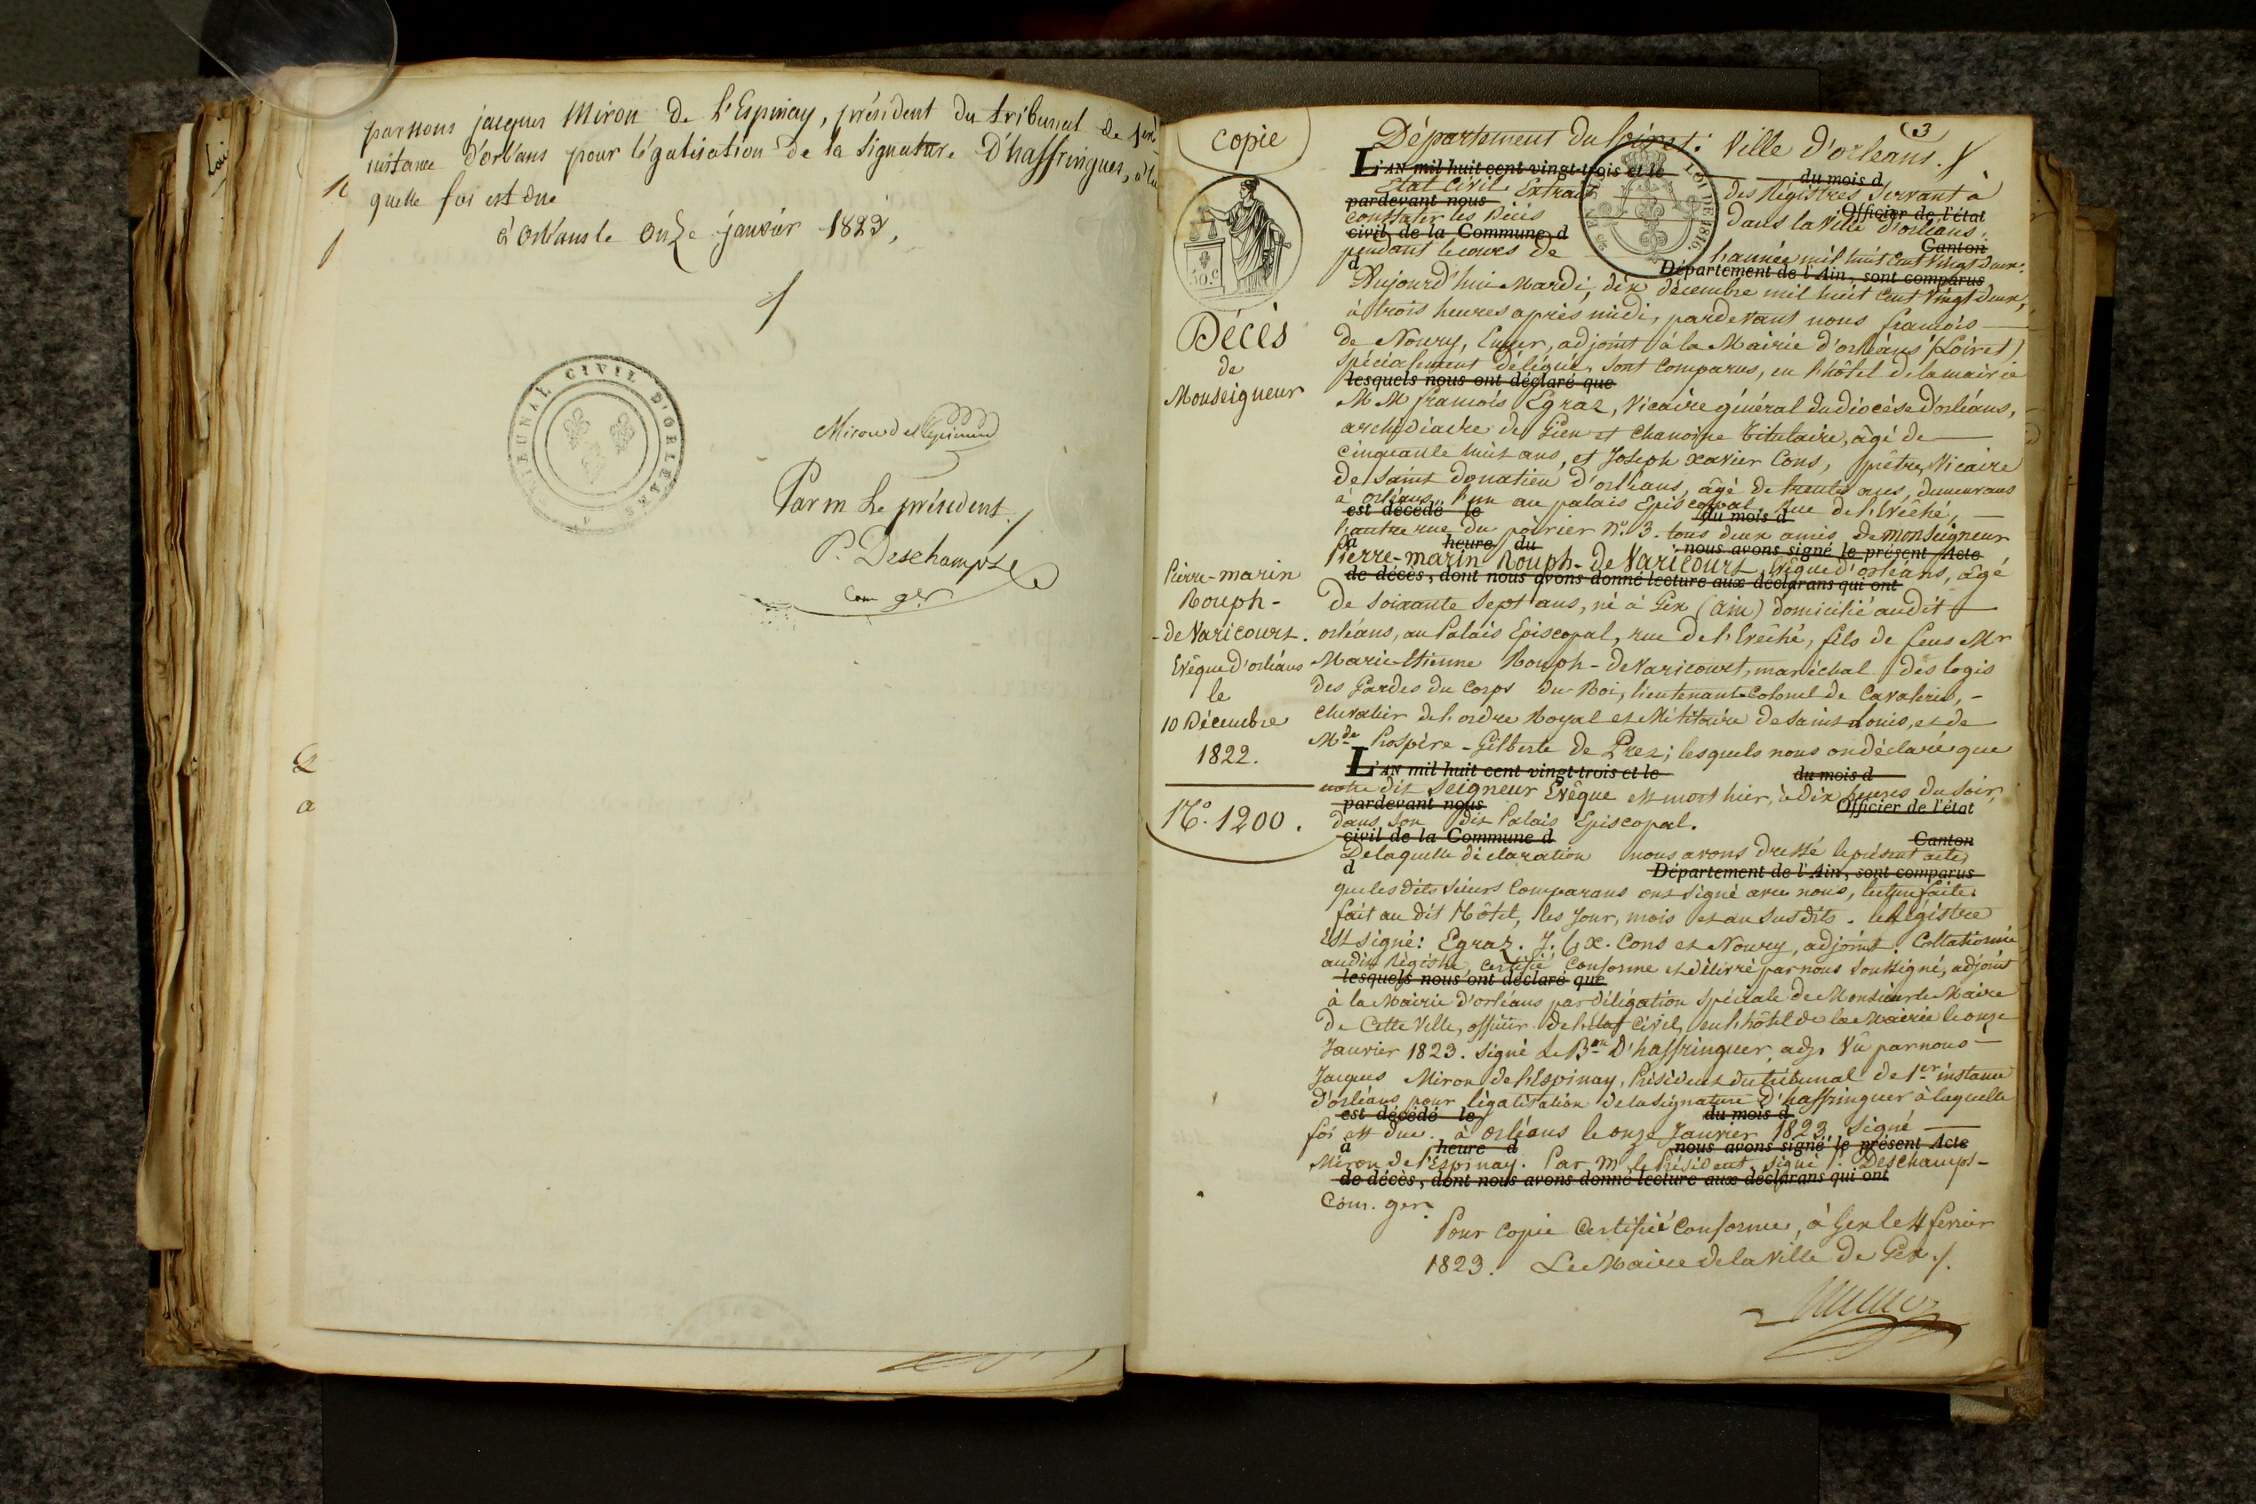 par nous jacques Miron de l'Espinay, président du tribunal de 1ère
instance d'orléans pour légalisation de la signature d'haffringues, à la
quelle foi est due
à Orléans le onze janvier 1823,
TRIBUNAL CIVIL D'ORLEANS
Miron de l'Espinay
Par m le président
P. Deschamps
Com ger
copie
3
Département du loiret : Ville d'orleans.
L'AN mil huit cent vingt-trois et le du mois d
Etat civil Extrait des Régistres servant à
pardevant nous Officier de l'état
constater les Décès dans la Ville d'orléans,
civil de la Commune d Canton
pendant le cours de l'année mil huit cent vingt deux.
d Département de l'Ain, sont comparus
LOI DE 1816.
50 c
Aujourd'hui Mardi, dix décembre mil huit cent vingt deux,
à trois heures après midi, pardevant nous françois
de Noury, Ecuyer, adjoint à la Mairie d'orléans (Loiret)
spécialement délégué, sont comparus, en l'hôtel de la mairie
lesquels nous ont déclaré que
M M françois Egraz, Vicaire général du diocèse d'orléans,
archidiacre de Gien et chanoine titulaire, âgé de
cinquante huit ans, et Joseph xavier Cons, prêtre Vicaire
de saint donatien d'orléans, âgé de trente ans, demeurans
à orléans, l'un au palais Episcopal, rue de l'Evêché,
est décédé le du mois d
l'autre rue du poirier N° 3. tous deux amis de monseigneur
à heure du nous avons signé le présent Acte
Pierre-marin Rouph-de Varicourt, Evêque d'orléans, âgé
de décès, dont nous avons donné lecture aux déclarans qui ont
de soixante sept ans, né à Gex (ain) domicilié audit
orléans, au Palais Episcopal, rue de l'Evêché, fils de feus Mr
Marie-Etienne Rouph-de Varicourt, maréchal des logis
des Gardes du Corps du Roi, lieutenant-Colonel de Cavalerie,
chevalier de l'ordre Royal et Militaire de saint Louis, et de
Mde Prospère-Gilberte de Prez; lesquels nous on déclaré que
L'AN mil huit cent vingt-trois et le du mois d
notre dit seigneur Evêque est mort hier, à dix heures du soir,
pardevant nous Officier de l'état
dans son dit Palais Episcopal.
civil de la Commune d Canton
De laquelle déclaration nous avons dressé le présent acte,
d Département de l'Ain, sont comparus
que les dits sieurs Comparans ont signé avec nous, lecture faite.
fait au dit Hôtel, les jour, mois et an susdits. le Régistre
est signé: Egraz. J. X. Cons et Noury, adjoint. Collationné
audit Régistre, certifié conforme et délivré par nous soussigné, adjoint
lesquels nous ont déclaré que
à la Mairie d'orléans par délégation spéciale de Monsieur le Maire
de Cette Ville, officier de l'état civil, en l'hôtel de la Mairie le onze
Janvier 1823. signé Le Bon D'haffringuer, adj. Vû par nous
Jacques Miron de l'Espinay, Président du tribunal de 1er instance
d'orléans pour légalisation de la signature d'haffringuer à laquelle
est décédé le du mois d
foi est due. à orléans le onze Janvier 1823, signé
à heure d nous avons signé le présent Acte
Miron de l'Espinay. Par m le Président, signé P. Deschamps
de décès, dont nous avons donné lecture aux déclarans qui ont
Com. ger.
Pour Copie Certifiée conforme, à Gex le 4 fevrier
1823. Le Maire de la Ville de Gex.
Décès
de
Monseigneur
Pierre-marin
Rouph-
-de Varicourt.
Evêque d'orléans
le
10 Décembre
1822.
N°. 1200.